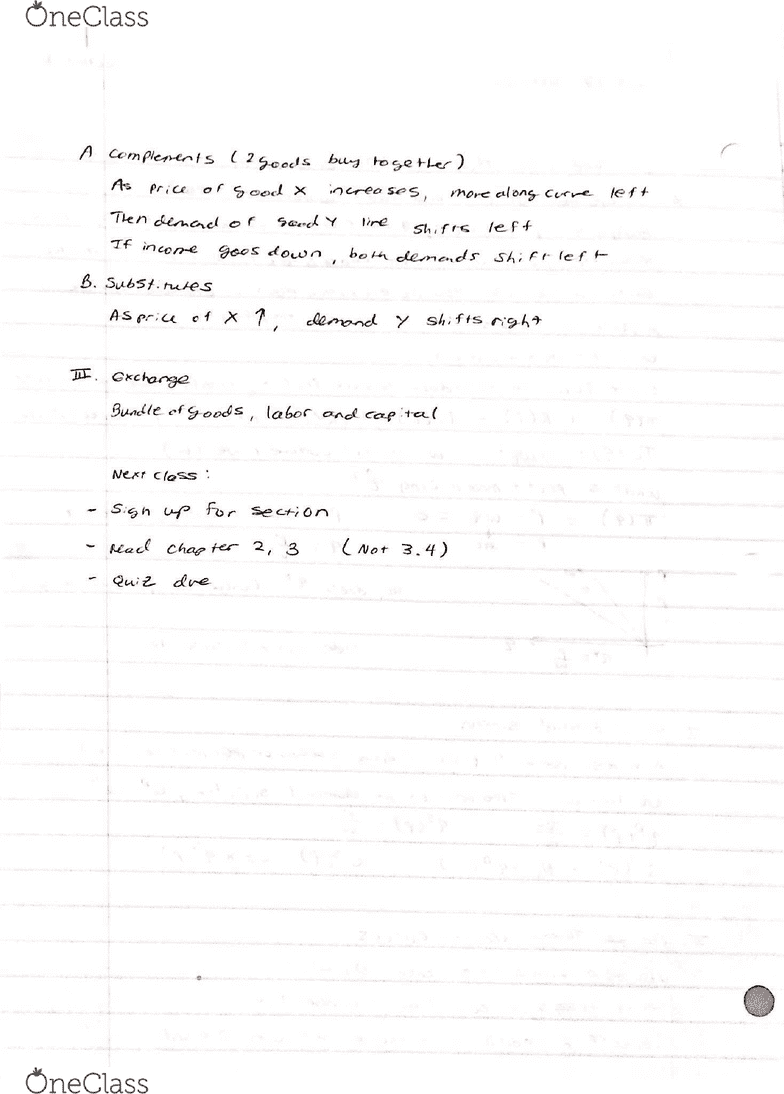 OneClass
A Complements (2 goods buy together)
As price of good X increases, move along curve left
Then demand of good Y line shifts left
If income goes down, both demands shift left
B. Substitutes
As price of X ↑, demand Y shifts right
III. Exchange
Bundle of goods, labor and capital
Next class:
- Sign up for section
- Read chapter 2, 3 (Not 3.4)
- Quiz due
OneClass